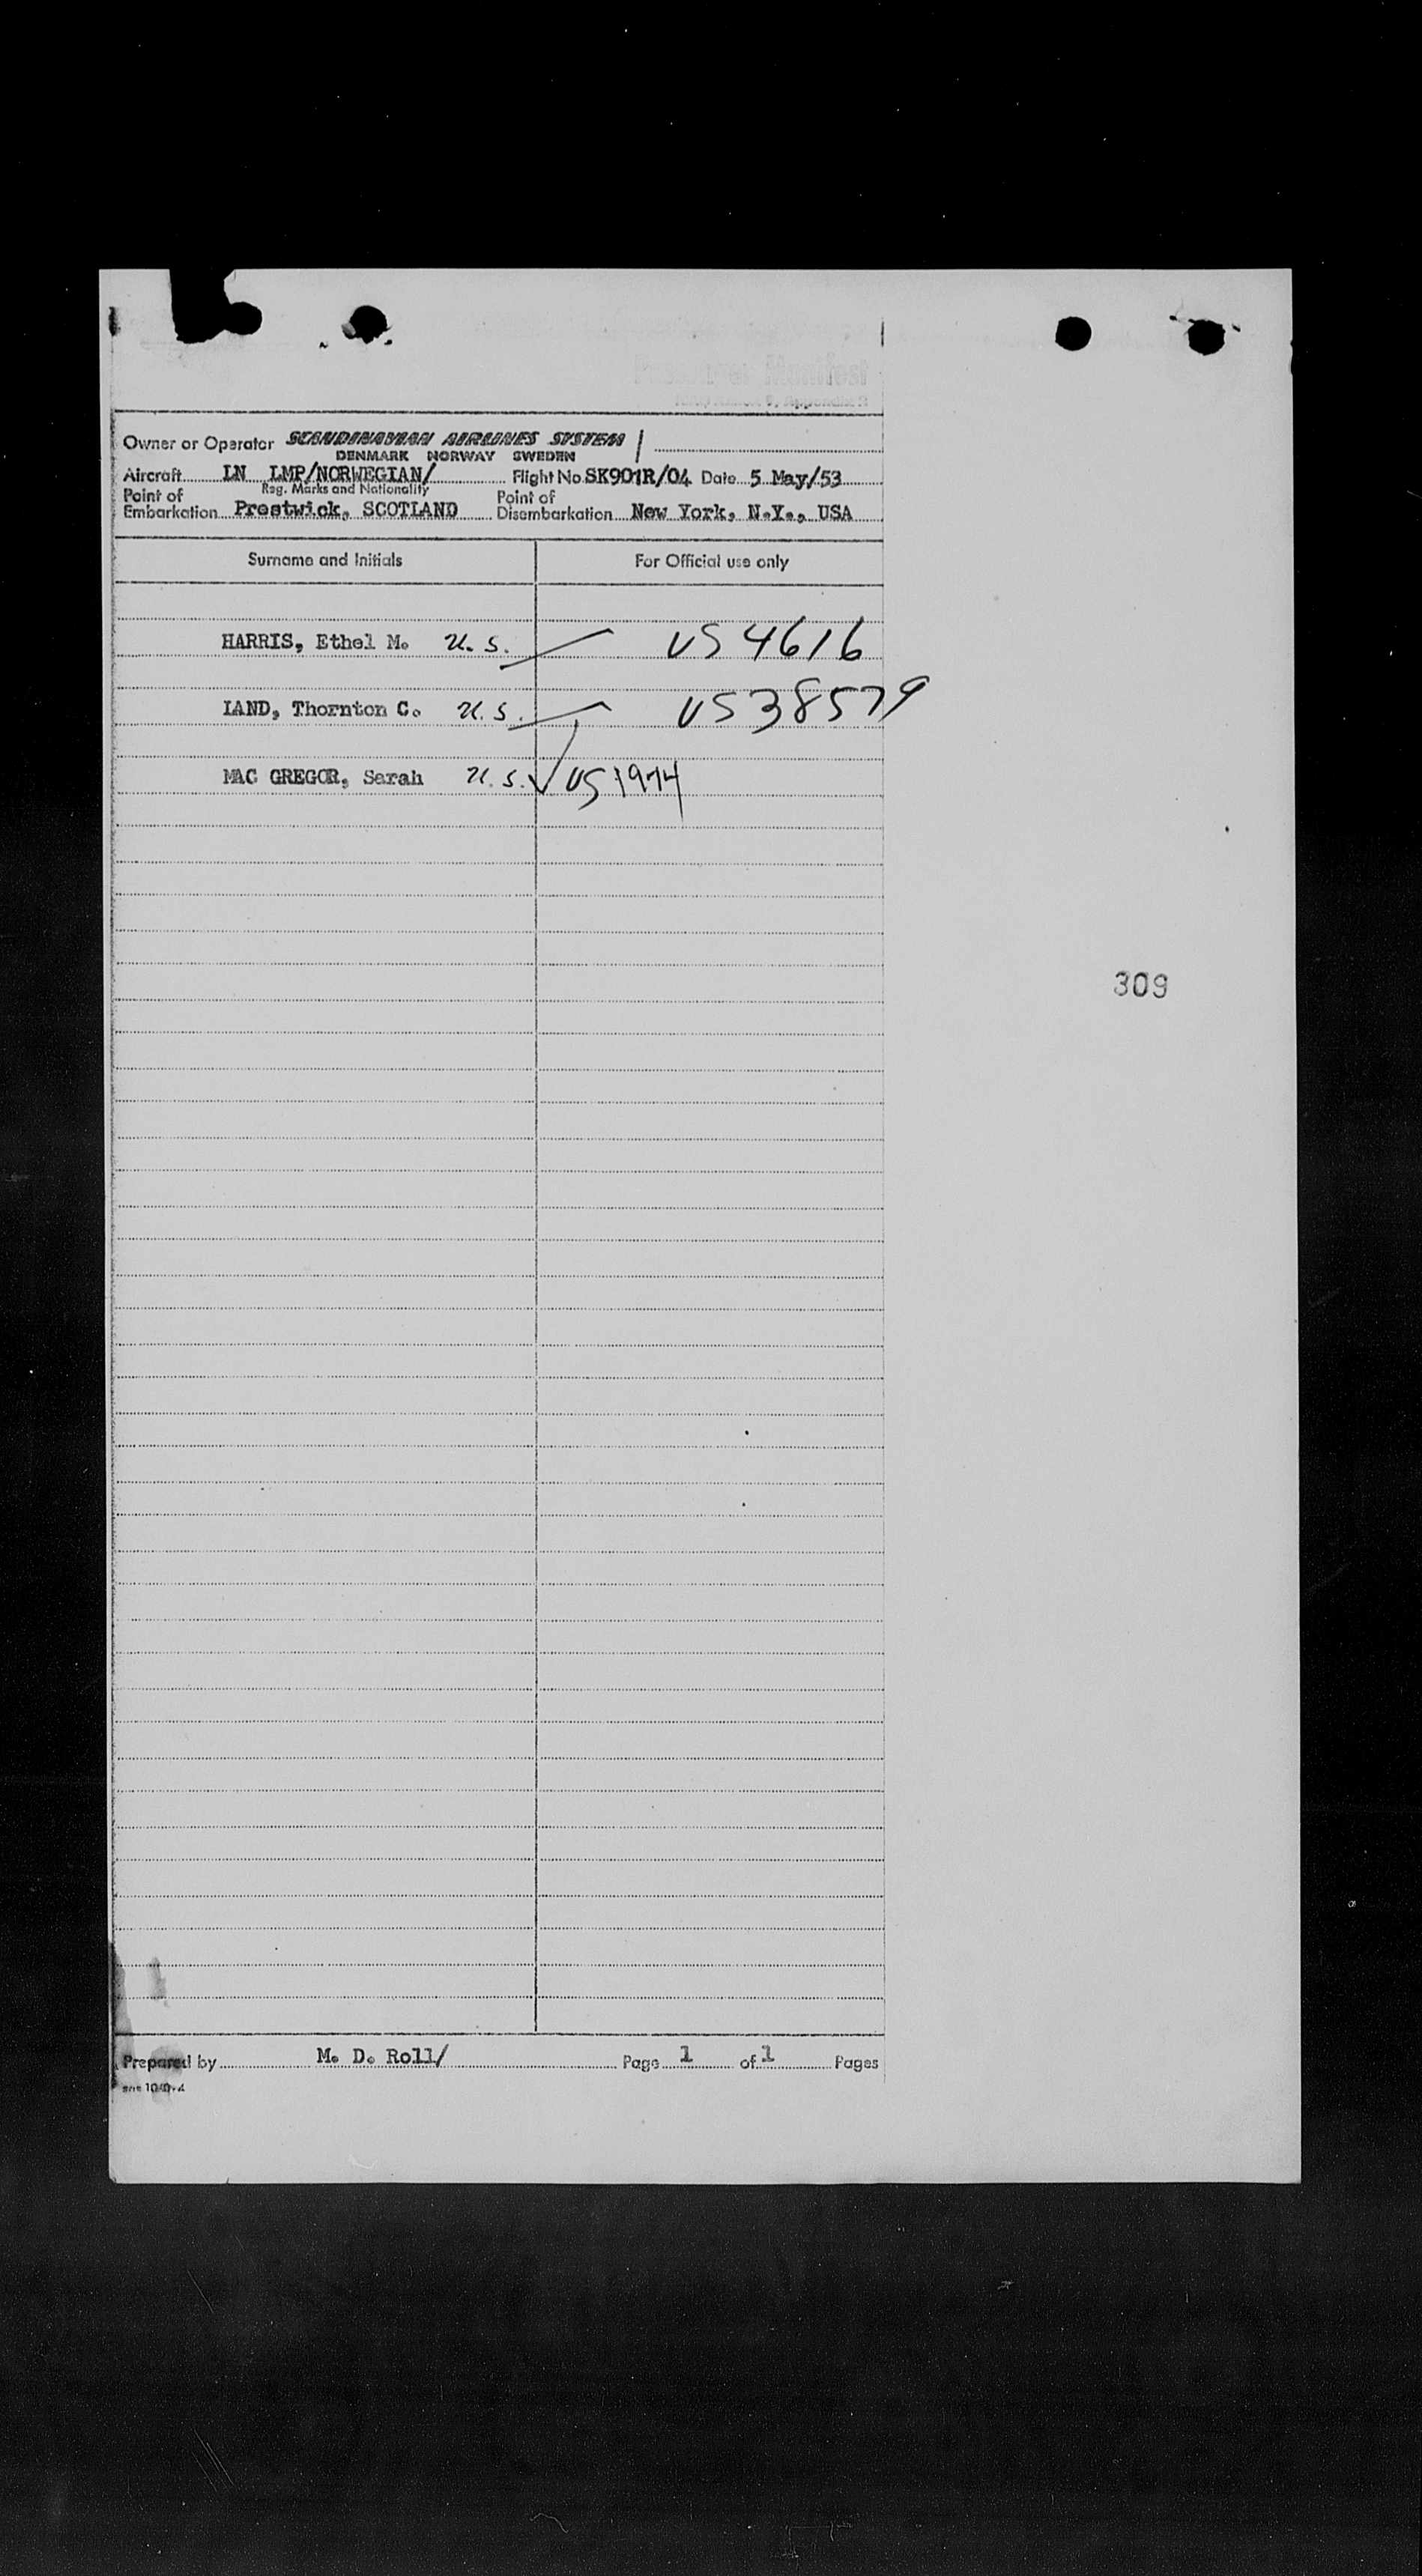 Passenger Manifest
Owner or Operator SCANDINAVIAN AIRLINES SYSTEM /
DENMARK NORWAY SWEDEN
Aircraft LN LMP/NORWEGIAN/ Flight No. SK901R/04 Date 5 May/53
Reg. Marks and Nationality
Point of Embarkation Prestwick, SCOTLAND Point of Disembarkation New York, N.Y., USA
Surname and Initials For Official use only
HARRIS, Ethel M. U.S. US 4616
LAND, Thornton C. U.S. US 38579
MAC GREGOR, Sarah U.S. US
309
Prepared by M. D. Roll/ Page 1 of 1 Pages